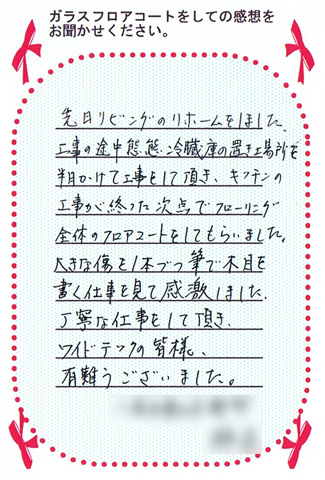 ガラスフロアコートをしての感想を
お聞かせください。
先日リビングのリホームをしました、
工事の途中態態冷蔵庫の置き場所を
半日かけて工事をして頂き、キッチンの
工事が終った次点でフローリング
全体のフロアコートをしてもらいました。
大きな傷を1本づつ筆で木目を
書く仕事を見て感激しました、
丁寧な仕事をして頂き、
ワイドテックの皆様、
有難うございました。